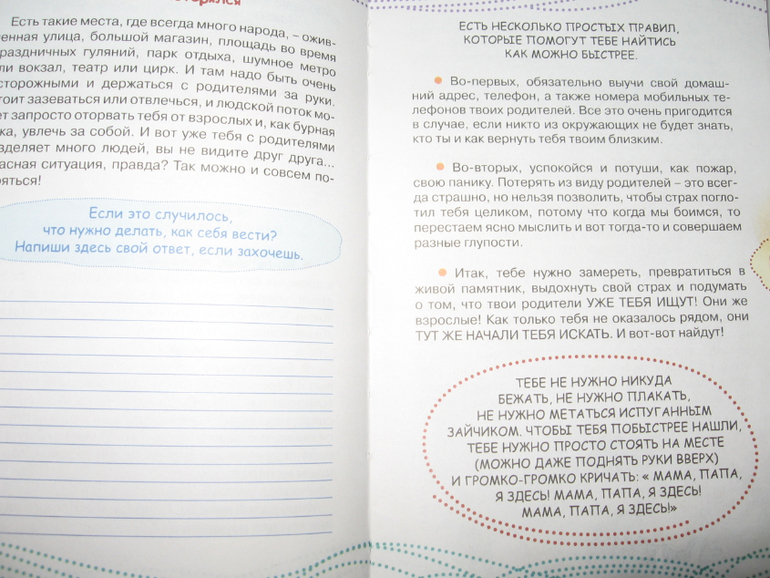 Есть такие места, где всегда много народа, – ожив-
енная улица, большой магазин, площадь во время
раздничных гуляний, парк отдыха, шумное метро
ли вокзал, театр или цирк. И там надо быть очень
сторожными и держаться с родителями за руки.
тоит зазеваться или отвлечься, и людской поток мо-
ет запросто оторвать тебя от взрослых и, как бурная
ка, увлечь за собой. И вот уже тебя с родителями
зделяет много людей, вы не видите друг друга...
асная ситуация, правда? Так можно и совсем по-
ряться!
Если это случилось,
что нужно делать, как себя вести?
Напиши здесь свой ответ, если захочешь.
ЕСТЬ НЕСКОЛЬКО ПРОСТЫХ ПРАВИЛ,
КОТОРЫЕ ПОМОГУТ ТЕБЕ НАЙТИСЬ
КАК МОЖНО БЫСТРЕЕ.
Во-первых, обязательно выучи свой домаш-
ний адрес, телефон, а также номера мобильных те-
лефонов твоих родителей. Все это очень пригодится
в случае, если никто из окружающих не будет знать,
кто ты и как вернуть тебя твоим близким.
Во-вторых, успокойся и потуши, как пожар,
свою панику. Потерять из виду родителей – это всег-
да страшно, но нельзя позволить, чтобы страх погло-
тил тебя целиком, потому что когда мы боимся, то
перестаем ясно мыслить и вот тогда-то и совершаем
разные глупости.
Итак, тебе нужно замереть, превратиться в
живой памятник, выдохнуть свой страх и подумать
о том, что твои родители УЖЕ ТЕБЯ ИЩУТ! Они же
взрослые! Как только тебя не оказалось рядом, они
ТУТ ЖЕ НАЧАЛИ ТЕБЯ ИСКАТЬ. И вот-вот найдут!
ТЕБЕ НЕ НУЖНО НИКУДА
БЕЖАТЬ, НЕ НУЖНО ПЛАКАТЬ,
НЕ НУЖНО МЕТАТЬСЯ ИСПУГАННЫМ
ЗАЙЧИКОМ. ЧТОБЫ ТЕБЯ ПОБЫСТРЕЕ НАШЛИ,
ТЕБЕ НУЖНО ПРОСТО СТОЯТЬ НА МЕСТЕ
(МОЖНО ДАЖЕ ПОДНЯТЬ РУКИ ВВЕРХ)
И ГРОМКО-ГРОМКО КРИЧАТЬ: « МАМА, ПАПА,
Я ЗДЕСЬ! МАМА, ПАПА, Я ЗДЕСЬ!
МАМА, ПАПА, Я ЗДЕСЬ!»